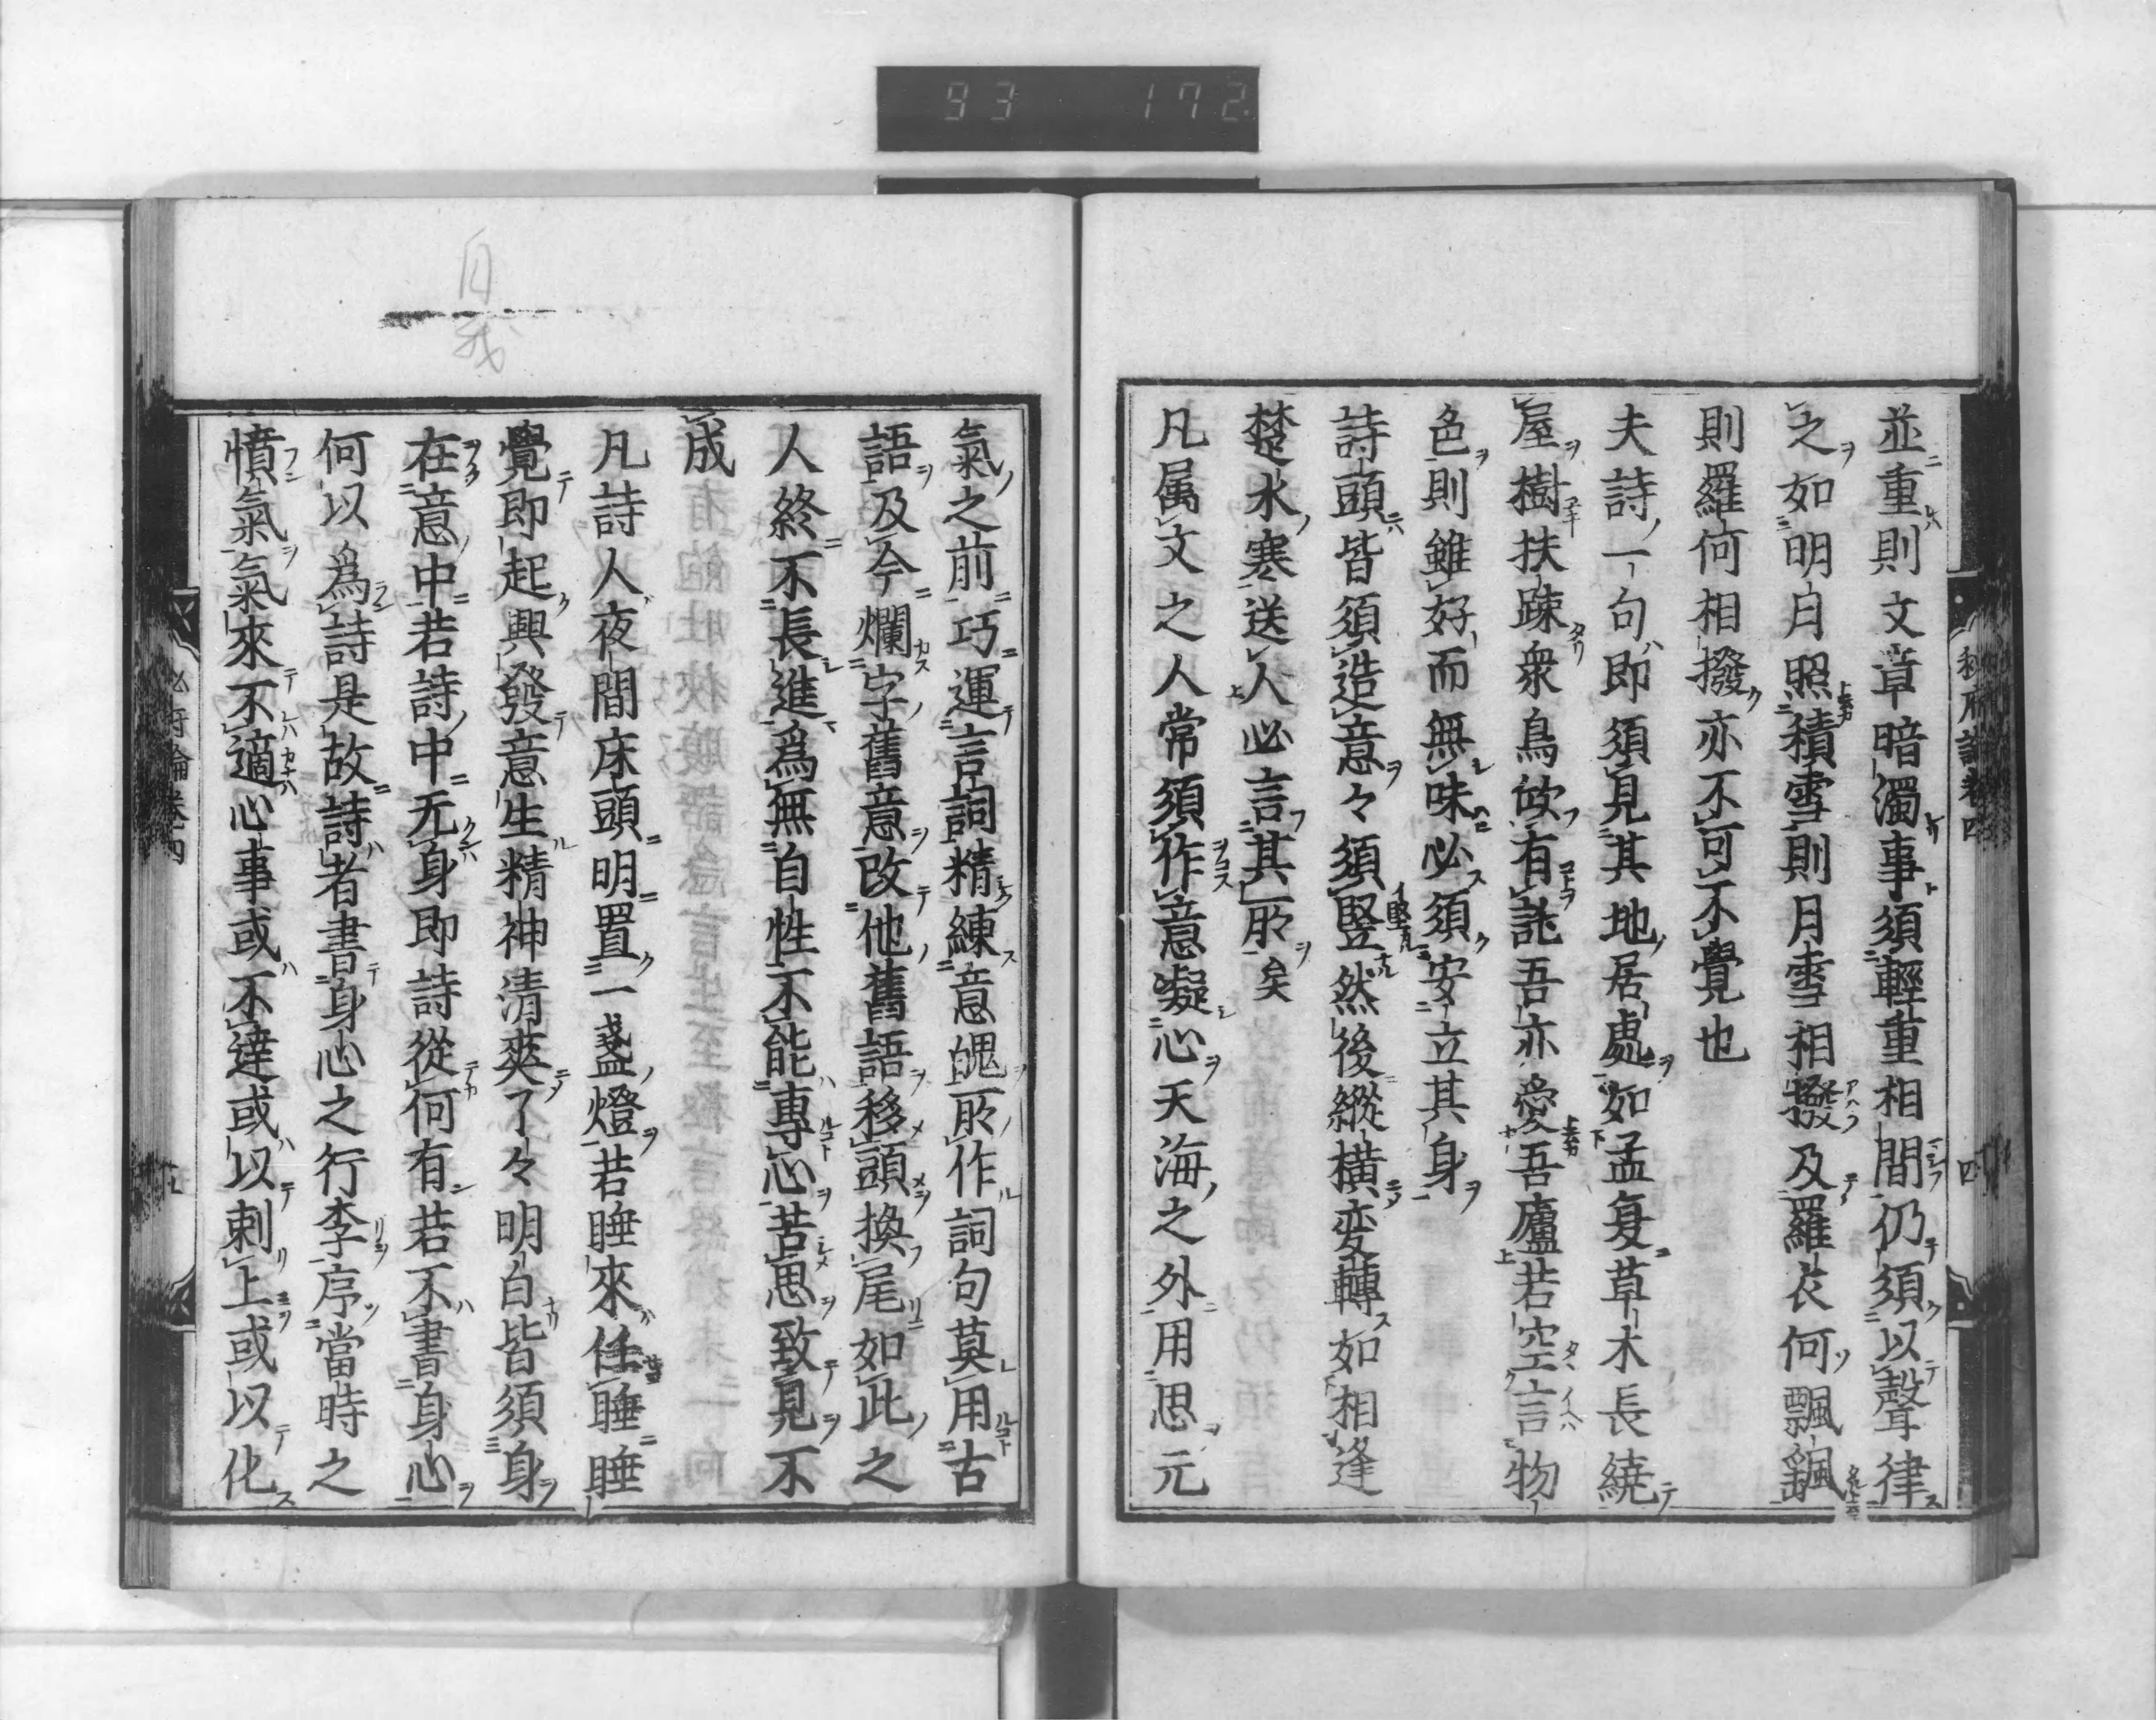 93 172
並重則文章暗濁事須輕重相間仍須以聲律
之如明月照積雪則月雪相撥及羅衣何飄飖
則羅何相撥亦不可不覺也
夫詩一句即須見其地居處如孟夏草木長繞
屋樹扶疎衆鳥欣有託吾亦愛吾廬若空言物
色則雖好而無味必須安立其身
詩頭皆須造意々須竪然後縱横変轉如相逢
楚水寒送人必言其所矣
凡属文之人常須作意凝心天海之外用思元
氣之前巧運言詞精練意魄所作詞句莫用古
語及今爛字舊意改他舊語移頭換尾如此之
人終不長進爲無自性不能專心苦思致見不
成
凡詩人夜間床頭明置一盞燈若睡來任睡睡
覺即起興發意生精神清爽了々明白皆須身
在意中若詩中无身即詩從何有若不書身心
何以爲詩是故詩者書身心之行李序當時之
憤氣氣來不適心事或不達或以刺上或以化